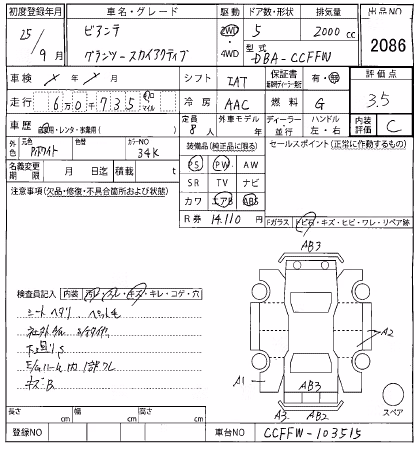 初度登録年月 車名・グレード 駆動 ドア数・形状 排気量 出品NO
25/9月 ビアンテ 2WD 5 2000cc 2086
グランツースカイアクティブ ・4WD 型式 DBA-CCFFW
車検 X年X月 シフト IAT 保証書 有・無 評価点
走行 6万0千735 キロ マイル 冷房 AAC 燃料 G 3.5
車歴 自家用・レンタ・事業用( ) 定員 8人 外車モデル 年 ディーラー 並行 ハンドル 左・右 内装評価 C
外色 元色 Pホワイト 色替 カラーNO 34K 装備品(純正品に限る) セールスポイント(正常に作動するもの)
名義変更期限 月 日迄 積載 t PS PW AW
注意事項(欠品・修復・不具合箇所および状態) SR TV ナビ
カワ エアB ABS
R券 14,110円 Fガラス トビ石・キズ・ヒビ・ワレ・リペア跡
AB3
検査員記入 内装 汚レ・スレ・キズ・キレ・コゲ・穴
シートヘタリ
下廻りS
キズB
A2
A1
AB3
A3 AB2
スペア
長さ cm 幅 cm 高さ cm
登録NO 車台NO CCFFW-103515